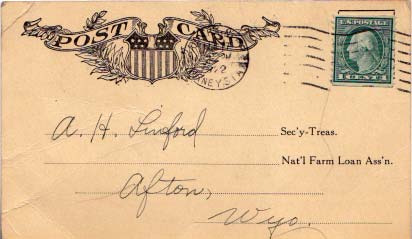 POST CARD
U.S. POSTAGE
1 CENT 1
A. H. Linford Sec'y-Treas.
Nat'l Farm Loan Ass'n.
Afton,
Wyo.